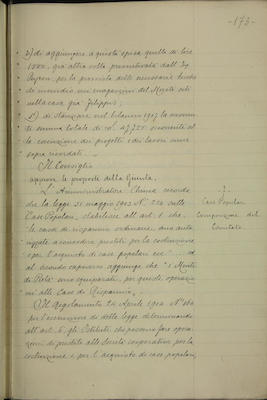 - 173 -
d) di aggiungere a questa spesa quella di lire
1000, già altra volta preventivata dall'Ing.
per la provvista delle necessarie bocche
da incendio nei magazzini del Monte siti
nella casa già Filippi;
e) di stanziare nel bilancio 1907 la
somma totale di L. 47,725 occorrente al
la esecuzione dei progetti e dei lavori innanzi
sopra ricordati.
Il Consiglio
approva le proposte della Giunta.
L'Amministratore Chinea ricorda
che la legge 31 maggio 1903 N. 254 sulle
Case Popolari, stabilisce all'art. 1 che
le casse di risparmio ordinarie, sono auto
rizzate a concedere prestiti per la costruzione
e per l'acquisto di case popolari ecc. ed
al secondo capoverso aggiunge che "i Monti
di Pietà sono equiparati, per queste operazio
ni alle Casse di Risparmio".
Il Regolamento 24 Aprile 1904 N.
per l'esecuzione di detta legge determinando
all'art. 6, gli Istituti che possono fare opera
zioni di prestito alle Società cooperative per la
costruzione e per l'acquisto di case popolari,
Case Popolari
Composizione del
Comitato